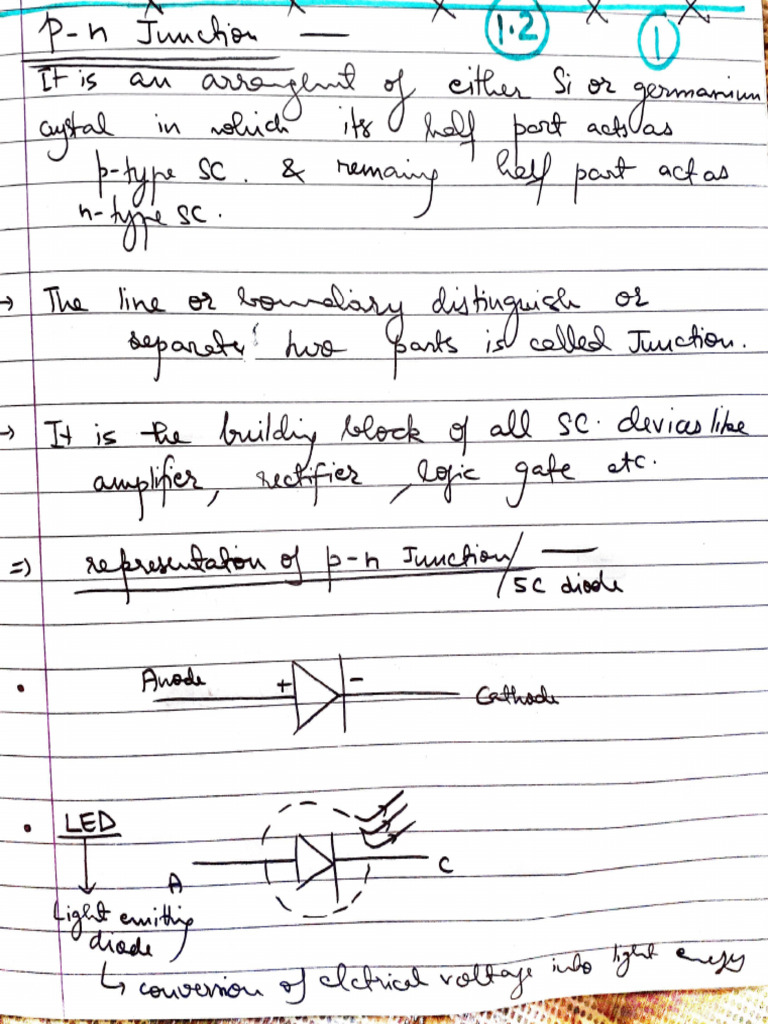 p-n Junction —
1.2
1
It is an arrangent of either Si or germanium
cystal in which its half part acts as
p-type SC. & remaing half part act as
n-type SC.
→ The line or boundary distinguish or
separate two parts is called Junction.
→ It is the building block of all SC. devices like
amplifier, rectifier, logic gate etc.
⇒ representation of p-n Junction/ —
SC diode
• Anode + - Cathode
• LED
A C
Light emitting
diode
↳ conversion of elctrical voltage into light energy